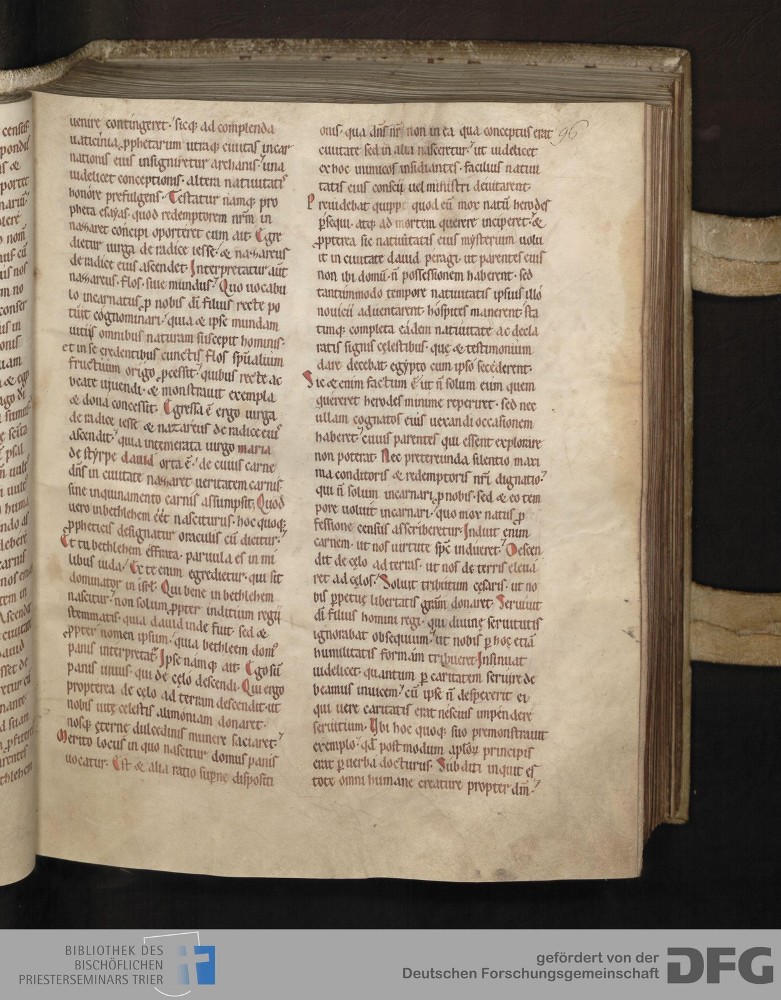 uenire contingeret. sicq; ad complenda
uaticinia ꝓphetarum utraq; ciuitas incar
nationis eius insigniretur archanis. una
uidelicet conceptionis. altera natiuitatis
honore prefulgens. Testatur namq; pro
pheta esayas. quod redemptorem nrm̄ in
nazaret concipi oporteret cum ait. Egre
dietur uirga de radice iesse. & nazareus
de radice eius ascendet. Interpretatur aūt
nazareus. flos. siue mundus. Quo uocabu
lo incarnatus ꝓ nobis dī filius recte po
tuit cognominari. quia & ipse mundam
uitiis omnibus naturam suscepit hominis.
et in se credentibus cunctis flos spūalium
fructuum origo ꝓcessit. quibus recte ac
beate uiuendi. & monstrauit exempla
& dona concessit. Egressa ē ergo uirga
de radice iesse & nazareus de radice eius
ascendit. quia intemerata uirgo maria
de styrpe dauid orta ē. de cuius carne
dn̄s in ciuitate nazaret ueritatem carnis
sine inquinamento carnis assumpsit. Quod
uero in bethlehem eēt nasciturus. hoc quoq;
ꝓpheticis designatur oraculis cū dicitur.
Et tu bethlehem effrata. paruula es in mi
libus iuda. Ex te enim egredietur. qui sit
dominator in isrl. Qui bene in bethlehem
nascitur. non solum ꝓpter inditium regii
stemmatis. quia dauid inde fuit. sed &
ꝓpter nomen ipsum. quia bethleem dom'
panis interpretat'. Ipse namq; ait. Ego sū
panis uiuus. qui de cęlo descendi. Qui ergo
propterea de cęlo ad terram descendit. ut
nobis uitę cęlestis alimoniam donaret.
nosq; ęternę dulcedinis munere saciaret.
Merito locus in quo nascitur domus panis
uocatur. Est & alia ratio supernę dispositi
96
onis. qua dn̄s nr̄ non in ea qua conceptus erat
ciuitate sed in alia nasceretur. ut uidelicet
ex hoc inimicos insidiantes. facilius natiui
tatis eius conscii uel ministri deuitarent.
Preuidebat quippe quod eū mox natū herodes
ꝑsequi. atq; ad mortem querere inciperet. &
ꝓpterea sic natiuitatis eius mysterium uolu
it in ciuitate dauid peragi. ut parentes eius
non ibi domū. ń possessionem haberent. sed
tantummodo tempore natiuitatis ipsius illo
nouicii aduentarent. hospites manerent. sta
timq; completa eadem natiuitate ac decla
ratis signis cęlestibus. quę & testimonium
dare decebat egypto cum ipso secederent.
Sic & enim factum ē ut n̄ solum eum quem
quereret herodes minime reperiret. sed nec
ullam cognatos eius uexandi occasionem
haberet. cuius parentes qui essent explorare
non poterat. Nec pretereunda silentio maxi
ma conditoris & redemptoris nr̄i dignatio.
qui n̄ solum incarnari ꝓ nobis. sed & eo tem
pore uoluit incarnari. quo mox natus ꝓ
fessione census asscriberetur. Induit enim
carnem. ut nos uirtute spc̄ indueret. Descen
dit de cęlo ad terras. ut nos de terris eleua
ret ad cęlos. Soluit tributum cęsaris. ut no
bis ꝑpetuę libertatis gr̄am donaret. Seruiuit
dī filius homini regi. qui diuinę seruitutis
ignorabat obsequium. ut nobis ꝑ hoc etiā
humilitatis formam tribueret. Insinuat
uidelicet. quantum ꝑ caritatem seruire de
beamus inuicem. cū ipse n̄ despexerit ei
qui uere caritatis erat nescius impendere
seruitium. Ubi hoc quoq; suo premonstrauit
exemplo. qd̄ postmodum apłoꝝ principis
erat ꝑ uerba docturus. Subditi inquit es
tote omni humane creature propter dm̄.
BIBLIOTHEK DES
BISCHÖFLICHEN
PRIESTERSEMINARS TRIER
gefördert von der
Deutschen Forschungsgemeinschaft
DFG